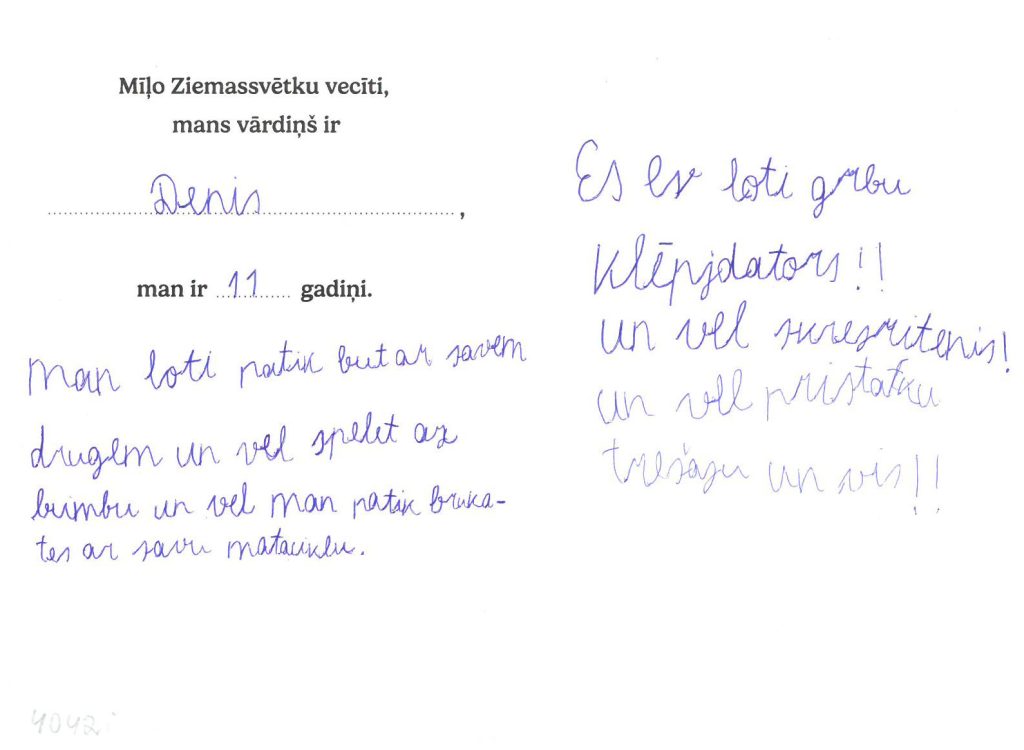 Mīļo Ziemassvētku vecīti,
mans vārdiņš ir
Denis,
man ir 11 gadiņi.
Man loti patik but ar savem
drugem un vel spelet az
bumbu un vel man patik bruka-
tes ar savu mataciklu.
Es loti grbu
Klēpjdators!!
un vel
un vel pristatku
trešaju un vis!!
4042